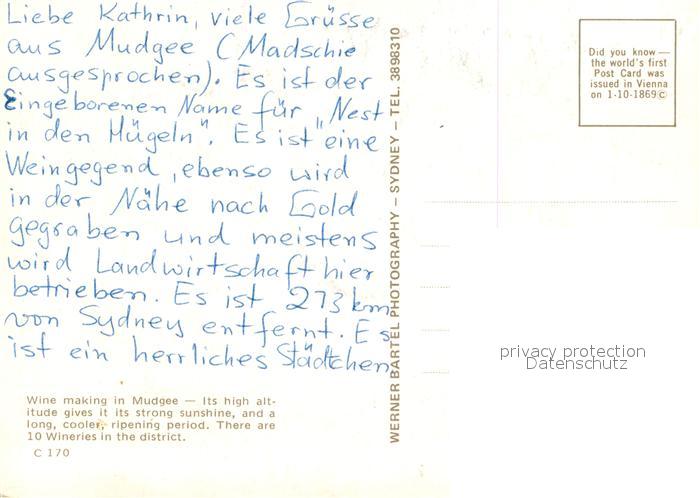 Liebe Kathrin, viele Grüsse
aus Mudgee (Madschie
ausgesprochen). Es ist der
Eingeborenen Name für „Nest
in den Hügeln". Es ist eine
Weingegend, ebenso wird
in der Nähe nach Gold
gegraben und meistens
wird Landwirtschaft hier
betrieben. Es ist 273 km
von Sydney entfernt. Es
ist ein herrliches Städtchen
Wine making in Mudgee — Its high alt-
itude gives it its strong sunshine, and a
long, cooler, ripening period. There are
10 Wineries in the district.
C 170
WERNER BARTEL PHOTOGRAPHY — SYDNEY — TEL. 3898310
Did you know —
the world's first
Post Card was
issued in Vienna
on 1-10-1869 ©
privacy protection
Datenschutz